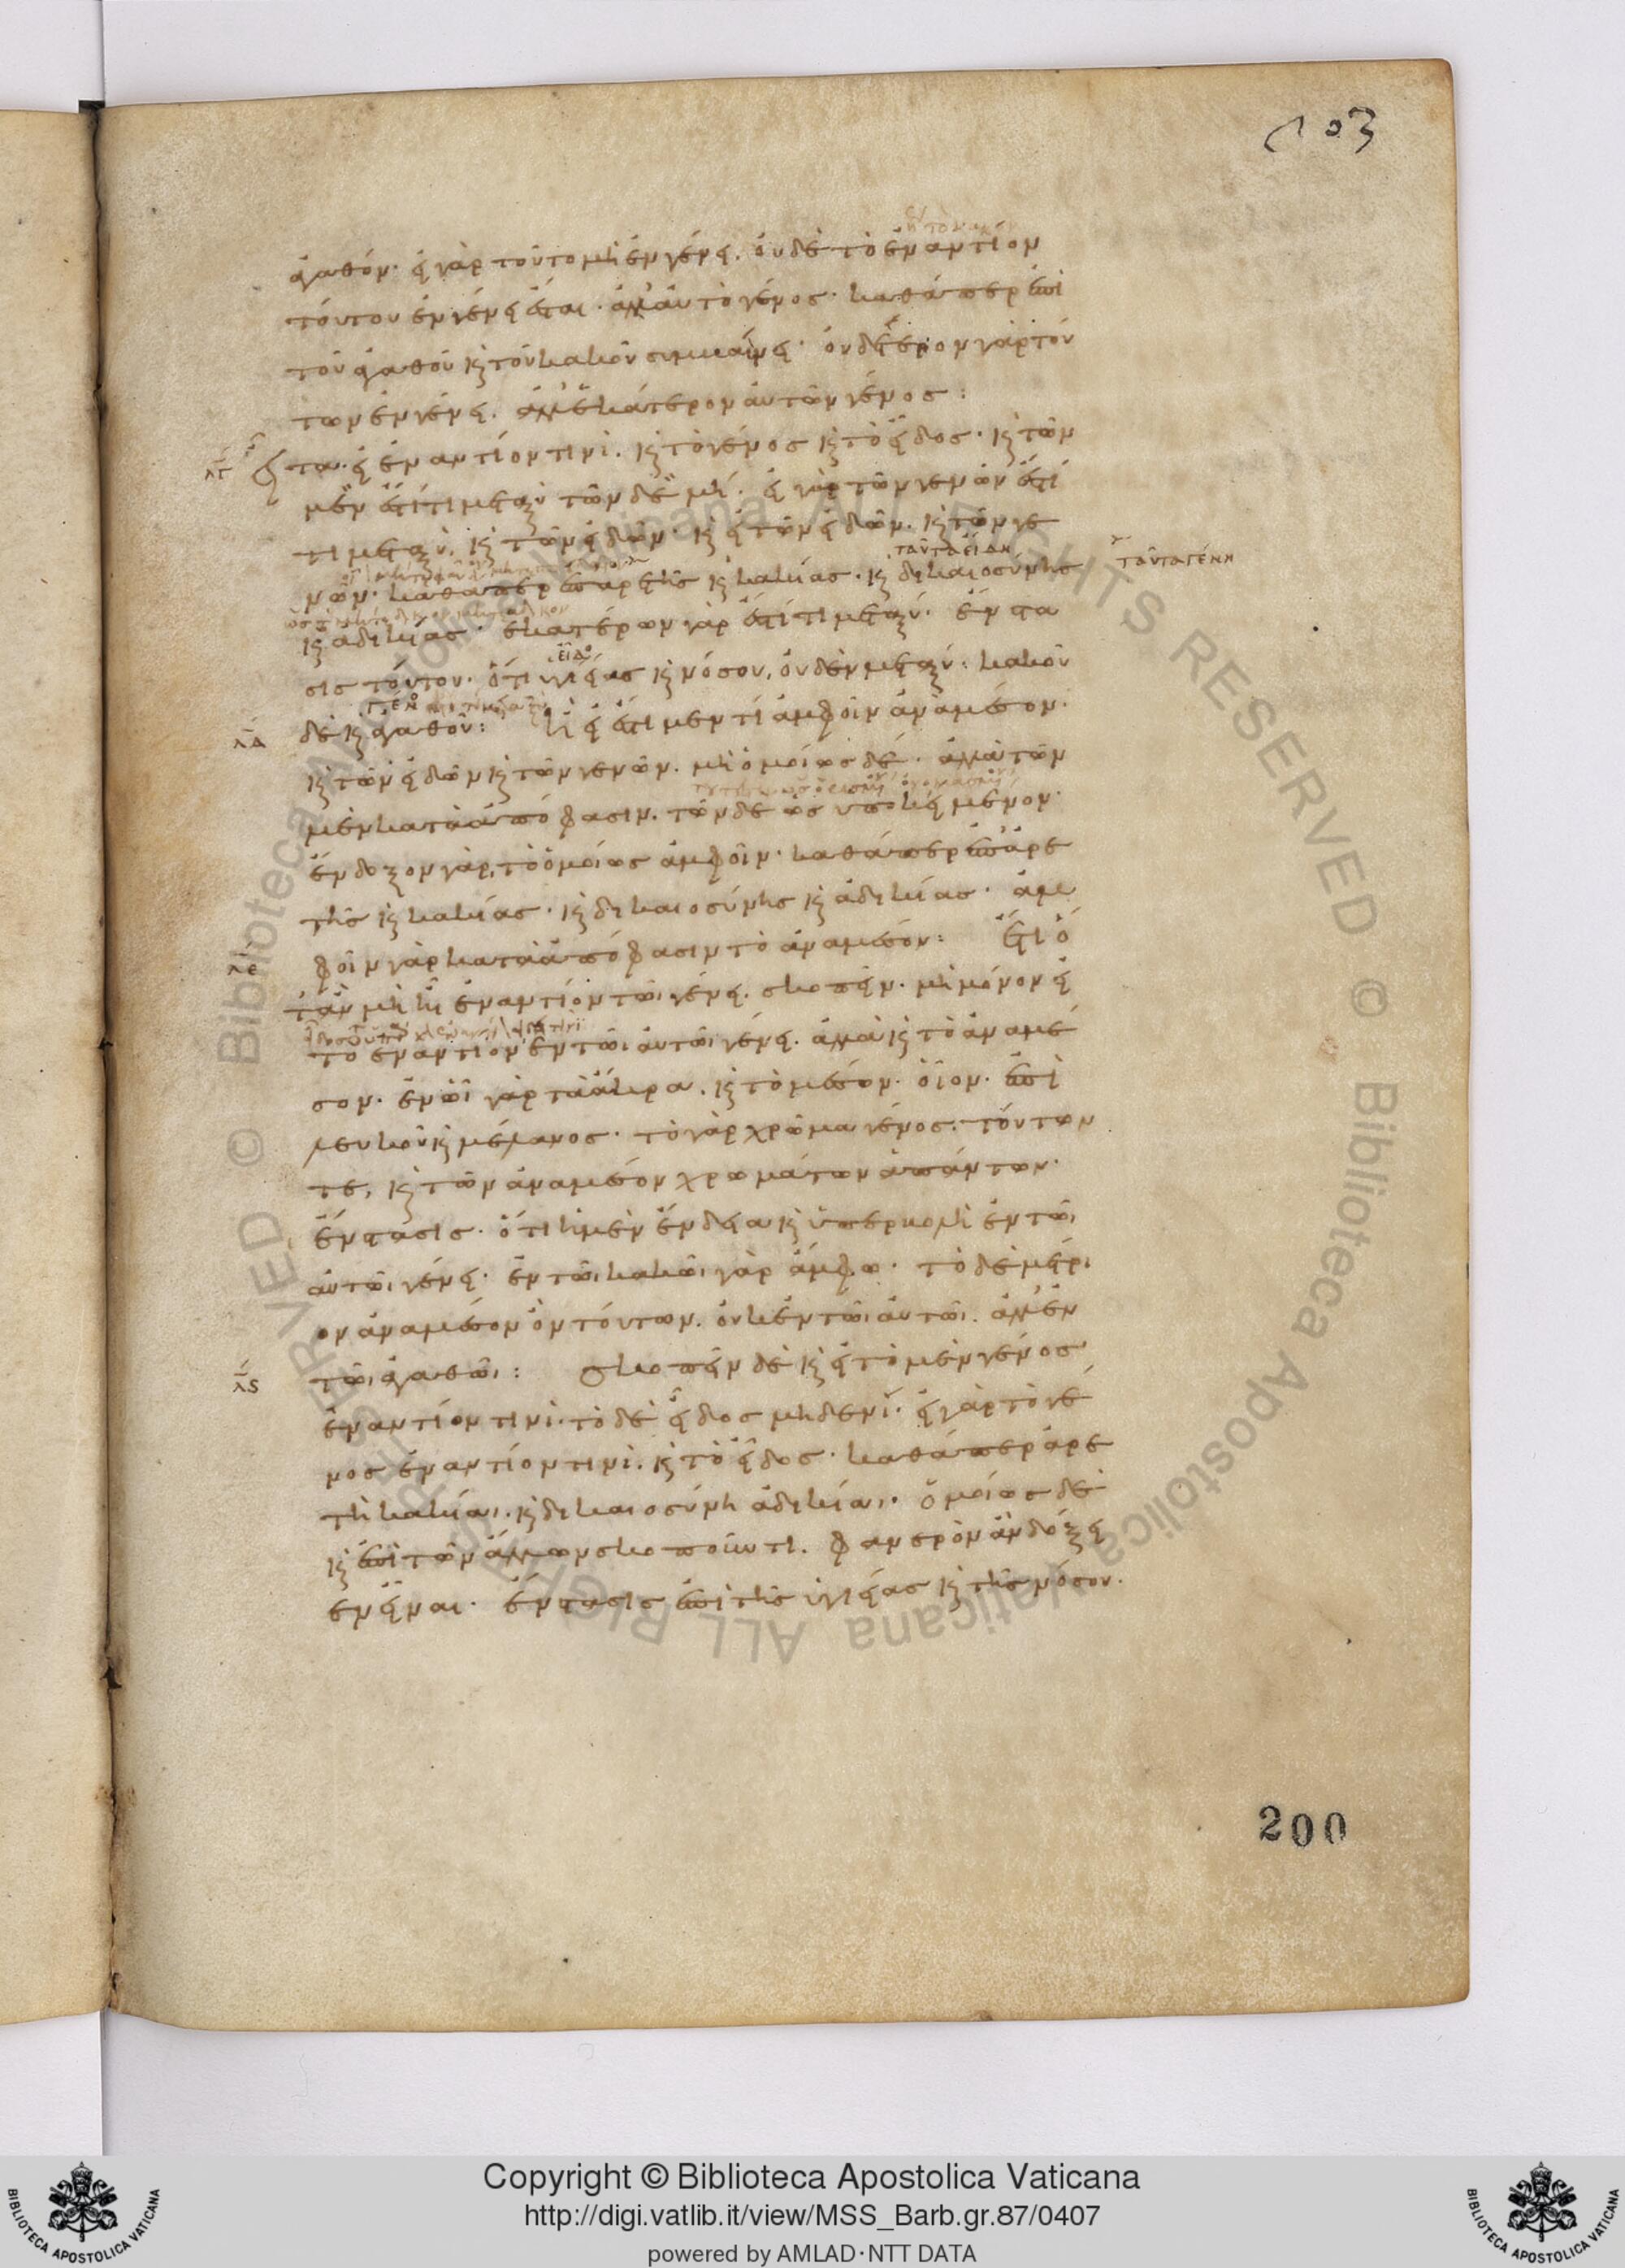 203
ἀγαθόν· εἰ γὰρ τοῦτο μὴ ἐν γένει. οὐδὲ τὸ ἐναντίον
τούτου ἐν γένει ἔσται· ἀλλ' αὐτὸ γένος· καθάπερ ἐπὶ
τοῦ ἀγαθοῦ καὶ τοῦ κακοῦ συμβαίνει· οὐδέτερον γὰρ τού
των ἐν γένει. ἀλλ' ἑκάτερον αὐτῶν γένος:
λγ ἔτι εἰ ἐναντίον τινὶ. καὶ τὸ γένος καὶ τὸ εἶδος· καὶ τῶν
μὲν ἔστί τι μεταξὺ τῶν δὲ μή· εἰ γὰρ τῶν γενῶν ἔστί
τι μεταξύ. καὶ τῶν εἰδῶν· καὶ εἰ τῶν εἰδῶν. καὶ τῶν γε
ταῦτα εἴδη ταῦτα γένη
νῶν· καθάπερ ἐπ' ἀρετῆς καὶ κακίας· καὶ δικαιοσύνης
καὶ ἀδικίας· ἑκατέρων γὰρ ἔστί τι μεταξύ· ἔνστα
εἶδος
σις τούτου· ὅτι ὑγιείας καὶ νόσου, οὐδὲν μεταξύ· κακοῦ
γένος
λδ δὲ καὶ ἀγαθοῦ: ἢ εἰ ἔστι μέν τι ἀμφοῖν ἀνάμεσον·
καὶ τῶν εἰδῶν καὶ τῶν γενῶν. μὴ ὁμοίως δέ· ἀλλὰ τῶν
μὲν κατὰ ἀπόφασιν. τῶν δὲ ὡς ὑποκείμενον·
ἔνδοξον γὰρ, τὸ ὁμοίως ἀμφοῖν· καθάπερ ἐπ' ἀρε
τῆς καὶ κακίας· καὶ δικαιοσύνης καὶ ἀδικίας· ἀμ
λε φοῖν γὰρ κατὰ ἀπόφασιν τὸ ἀνάμεσον: ἔτι ὅ
τ' ἂν μὴ ᾖ ἐναντίον τῶι γένει. σκοπεῖν· μὴ μόνον εἰ
τὸ ἐναντίον ἐν τῶι αὐτῶι γένει. ἀλλὰ καὶ τὸ ἀνάμε
σον· ἐν ὧι γὰρ τὰ ἄκρα. καὶ τὸ μέσον· οἷον· ἐπὶ
λευκοῦ καὶ μέλανος· τὸ γὰρ χρῶμα γένος· τούτων
τε, καὶ τῶν ἀνάμεσον χρωμάτων ἁπάντων·
ἔνστασις· ὅτι ἡ μὲν ἔνδεια καὶ ὑπερβολὴ ἐν τῶι
αὐτῶι γένει· ἐν τῶι κακῶι γὰρ ἄμφω· τὸ δὲ μέτρι
ον ἀνάμεσον ὂν τούτων. οὐκ ἐν τῶι αὐτῶι. ἀλλ' ἐν
λς τῶι ἀγαθῶι: σκοπεῖν δὲ καὶ εἰ τὸ μὲν γένος
ἐναντίον τινὶ· τὸ δὲ εἶδος μηδενί· εἰ γὰρ τὸ γέ
νος ἐναντίον τινὶ. καὶ τὸ εἶδος· καθάπερ ἀρε
τὴ κακίαι. καὶ δικαιοσύνη ἀδικίαι· ὁμοίως δὲ
καὶ ἐπὶ τῶν ἄλλων σκοποῦντι. φανερὸν ἂν δόξει
εν εἶναι· ἔνστασις ἐπὶ τῆς ὑγιείας καὶ τῆς νόσου.
200
Copyright © Biblioteca Apostolica Vaticana
http://digi.vatlib.it/view/MSS_Barb.gr.87/0407
powered by AMLAD·NTT DATA